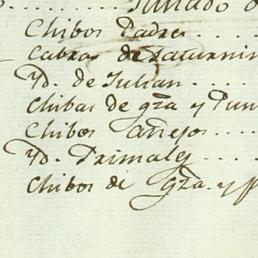 Chibos Padres....
Cabras de Saturnin
Yd. de Julian....
Chibas de gza y Pun
Chibos añejos....
Yd. Primales....
Chibos de Gza. y P